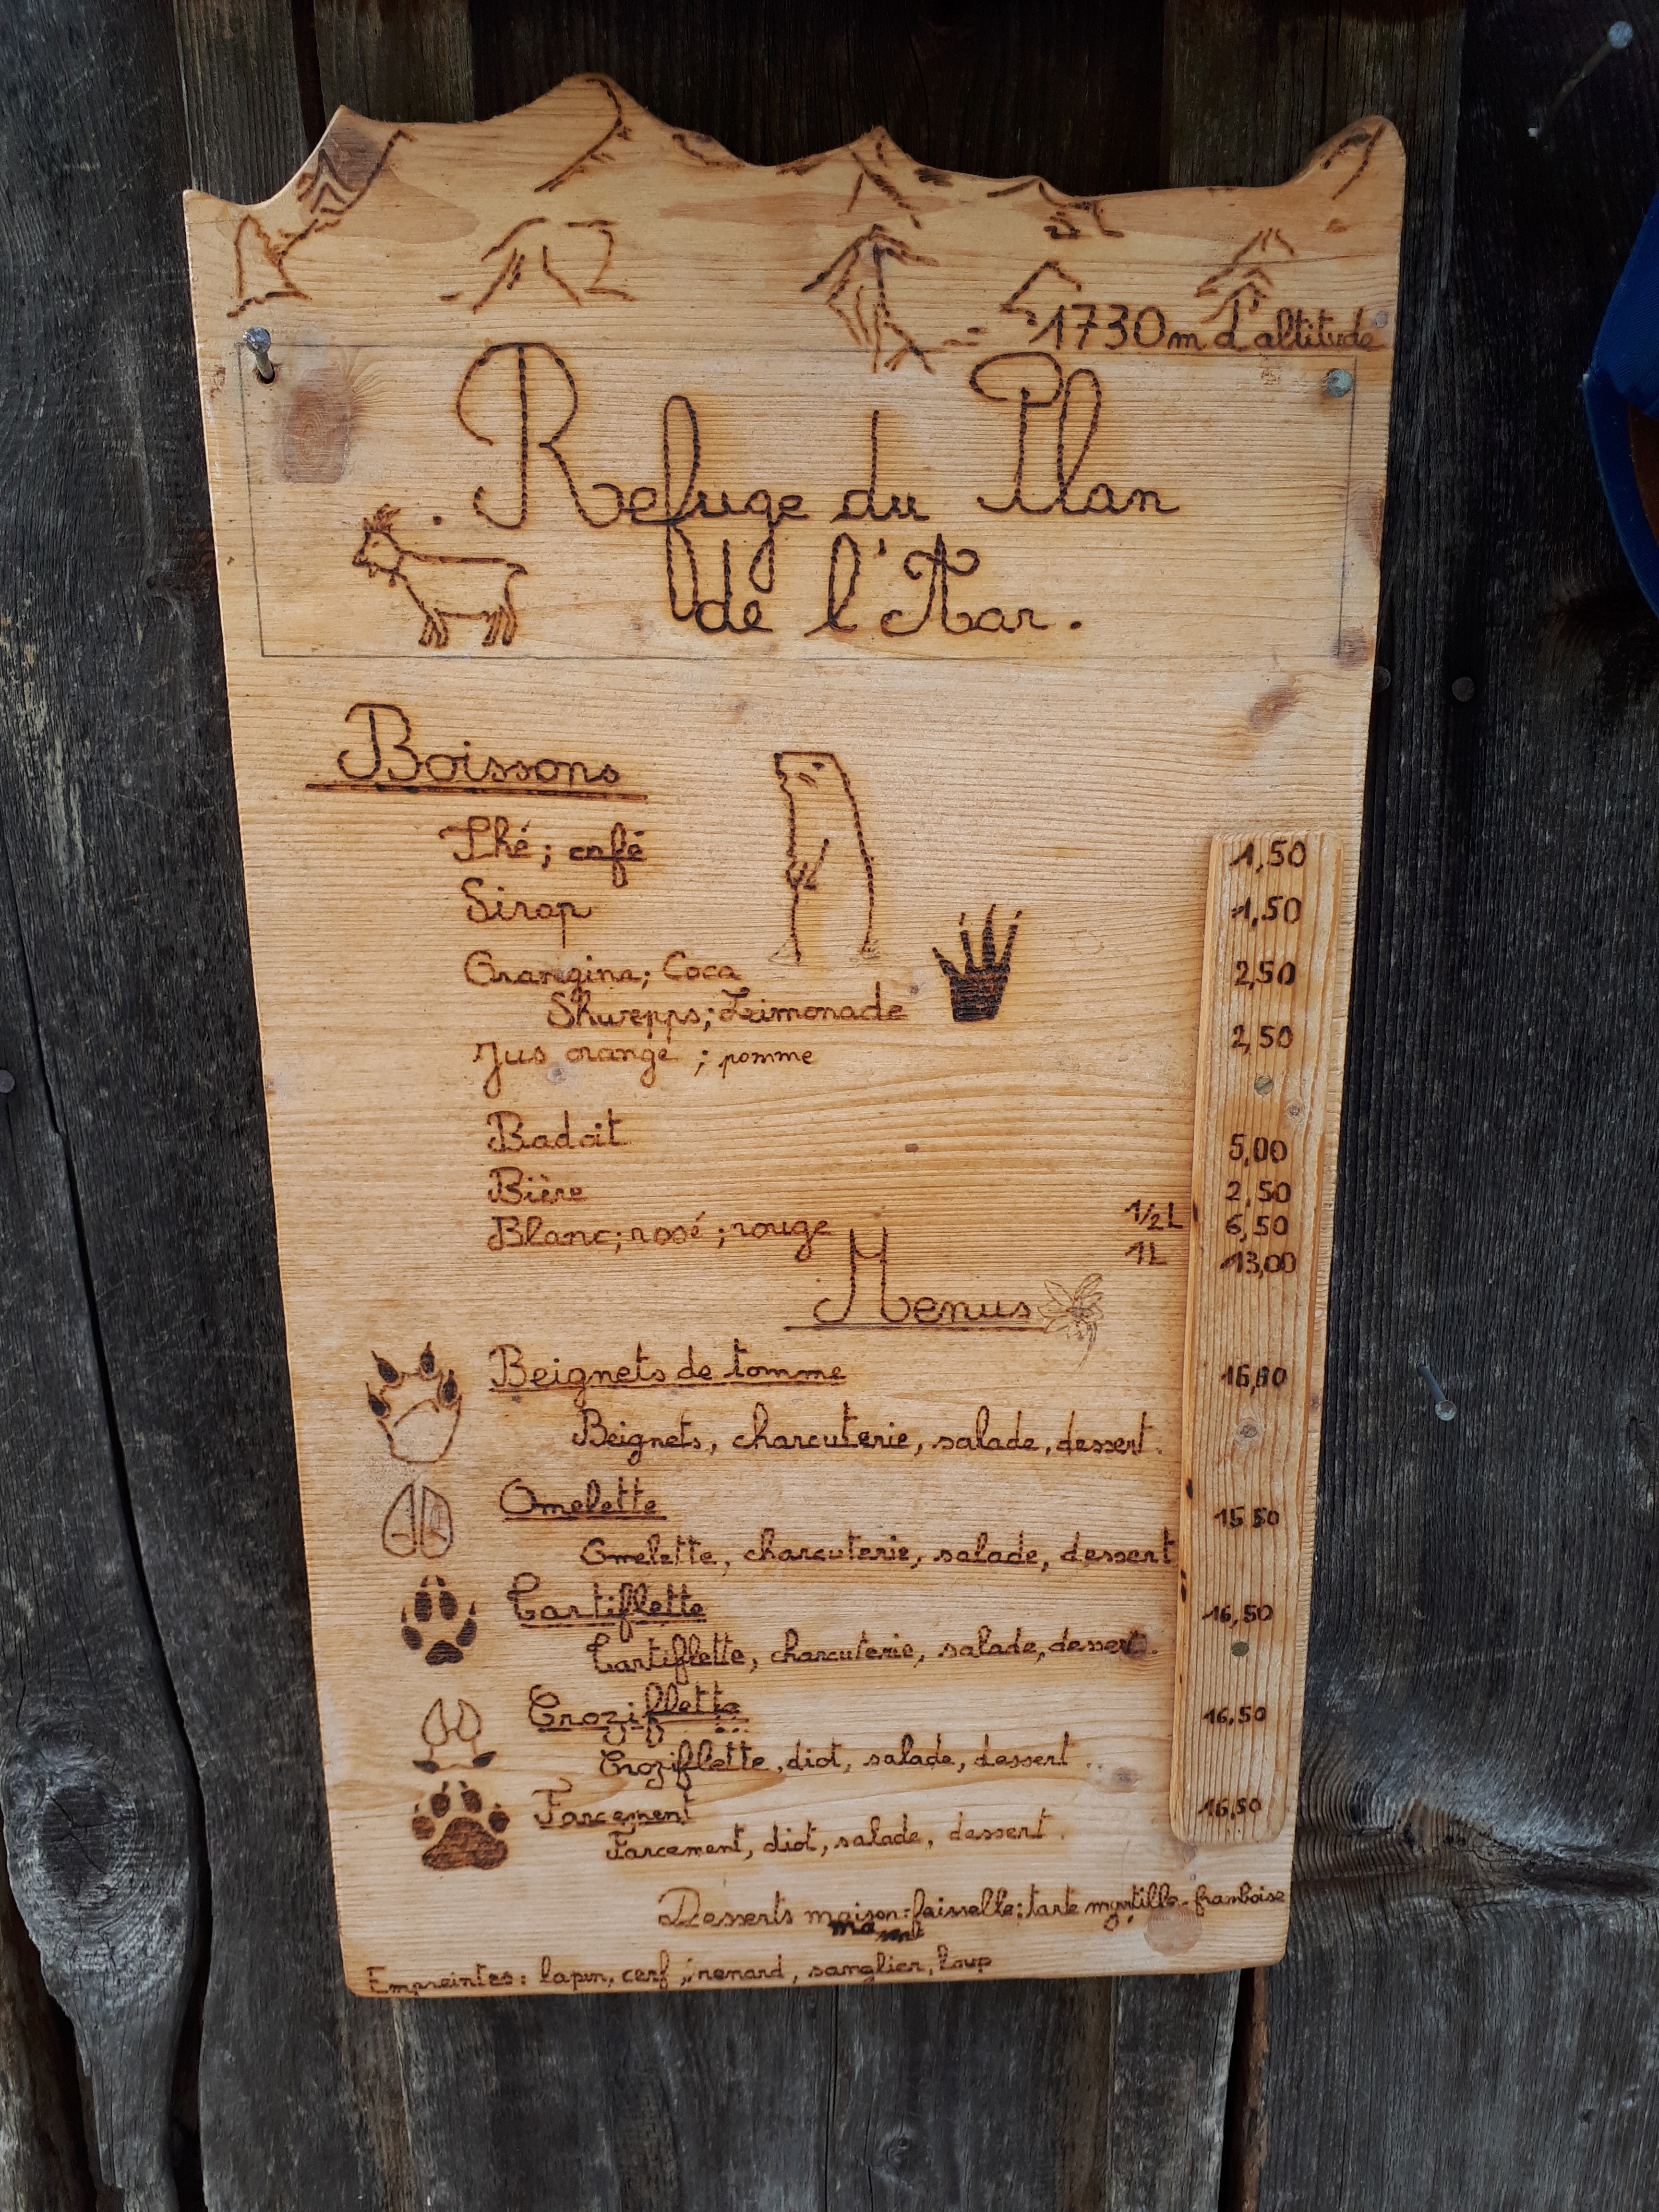 1730m d'altitude
Refuge du Plan
de l'Aar.
Boissons
Thé; café 1,50
Sirop 1,50
Orangina; Coca 2,50
Shwepps; Limonade
Jus orange ; pomme 2,50
Badoit 5,00
Bière 2,50
Blanc; rosé; rouge 1/2L 6,50
1L 13,00
Menus
Beignets de tomme
Beignets, charcuterie, salade, dessert.
Omelette 15,50
Omelette, charcuterie, salade, dessert
Tartiflette 16,50
Tartiflette, charcuterie, salade, dessert.
Croziflette 16,50
Croziflette, diot, salade, dessert..
Farcement 16,50
Farcement, diot, salade, dessert.
Desserts maison: faisselle; tarte myrtille-framboise
Empreintes: lapin, cerf, renard, sanglier, loup